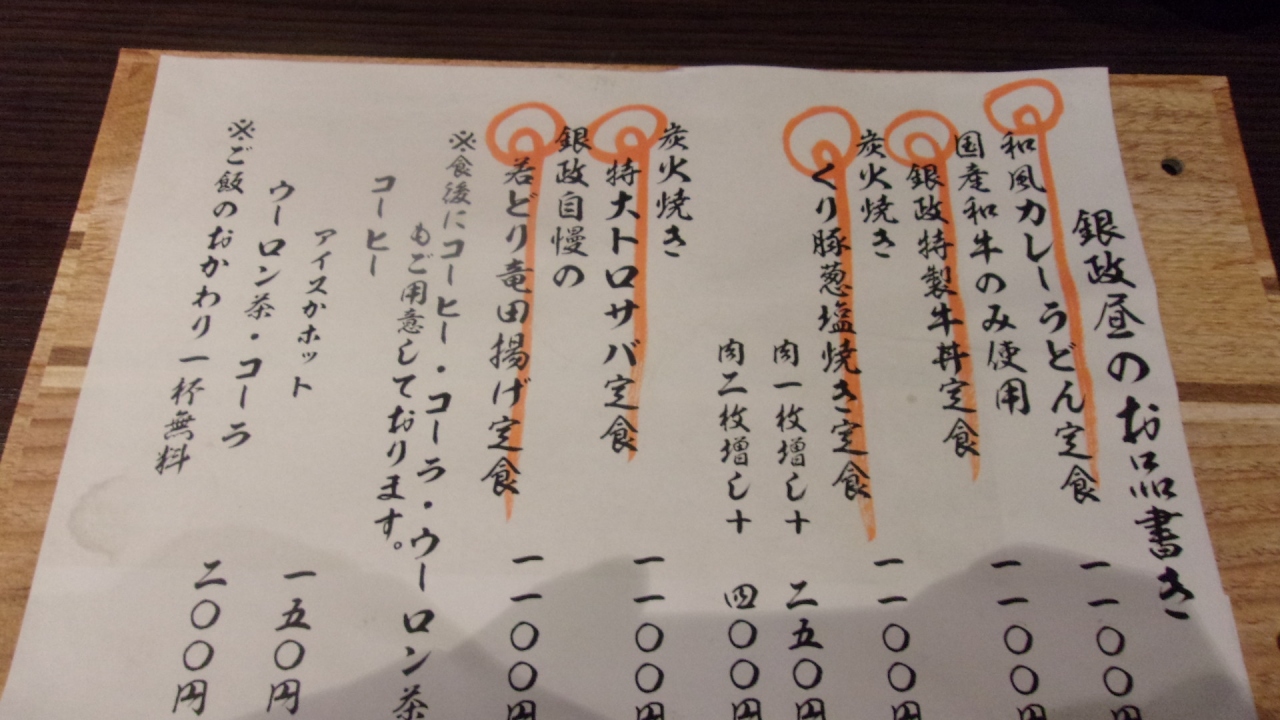 銀政昼のお品書き
和風カレーうどん定食 一一〇〇円
国産和牛のみ使用
銀政特製牛丼定食 一一〇〇円
炭火焼き
くり豚葱塩焼き定食 一一〇〇円
肉一枚増し+ 二五〇円
肉二枚増し+ 四〇〇円
炭火焼き
特大トロサバ定食 一一〇〇円
銀政自慢の
若どり竜田揚げ定食 一一〇〇円
※食後にコーヒー・コーラ・ウーロン茶
もご用意しております。
コーヒー
アイスかホット
ウーロン茶・コーラ 一五〇円
※ご飯のおかわり一杯無料 二〇〇円